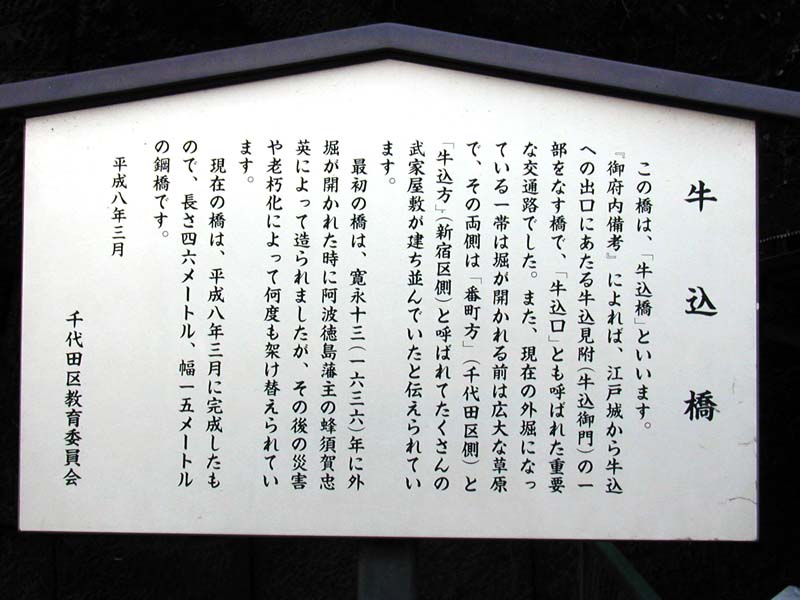 牛込橋
この橋は、「牛込橋」といいます。
『御府内備考』によれば、江戸城から牛込
への出口にあたる牛込見附(牛込御門)の一
部をなす橋で、「牛込口」とも呼ばれた重要
な交通路でした。また、現在の外堀になっ
ている一帯は堀が開かれる前は広大な草原
で、その両側は「番町方」(千代田区側)と
「牛込方」(新宿区側)と呼ばれてたくさんの
武家屋敷が建ち並んでいたと伝えられてい
ます。
最初の橋は、寛永十三(一六三六)年に外
堀が開かれた時に阿波徳島藩主の蜂須賀忠
英によって造られましたが、その後の災害
や老朽化によって何度も架け替えられてい
ます。
現在の橋は、平成八年三月に完成したも
ので、長さ四六メートル、幅一五メートル
の鋼橋です。
平成八年三月
千代田区教育委員会